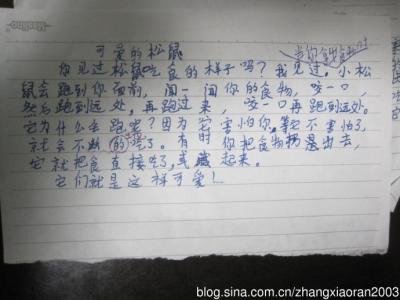 可爱的松鼠
当你食物时
你见过松鼠吃食的样子吗？我见过。小松
鼠会跑到你面前，闻一闻你的食物，咬一口，
然后跑到远处，再跑过来，咬一口再跑到远处。
它为什么会跑呢？因为它害怕你，等它不害怕了，
就会不断的吃了。有时你把食物扔出去，
它就把食直接吃了，或藏起来。
它们就是这样可爱！
blog.sina.com.cn/zhangxiaoran2003